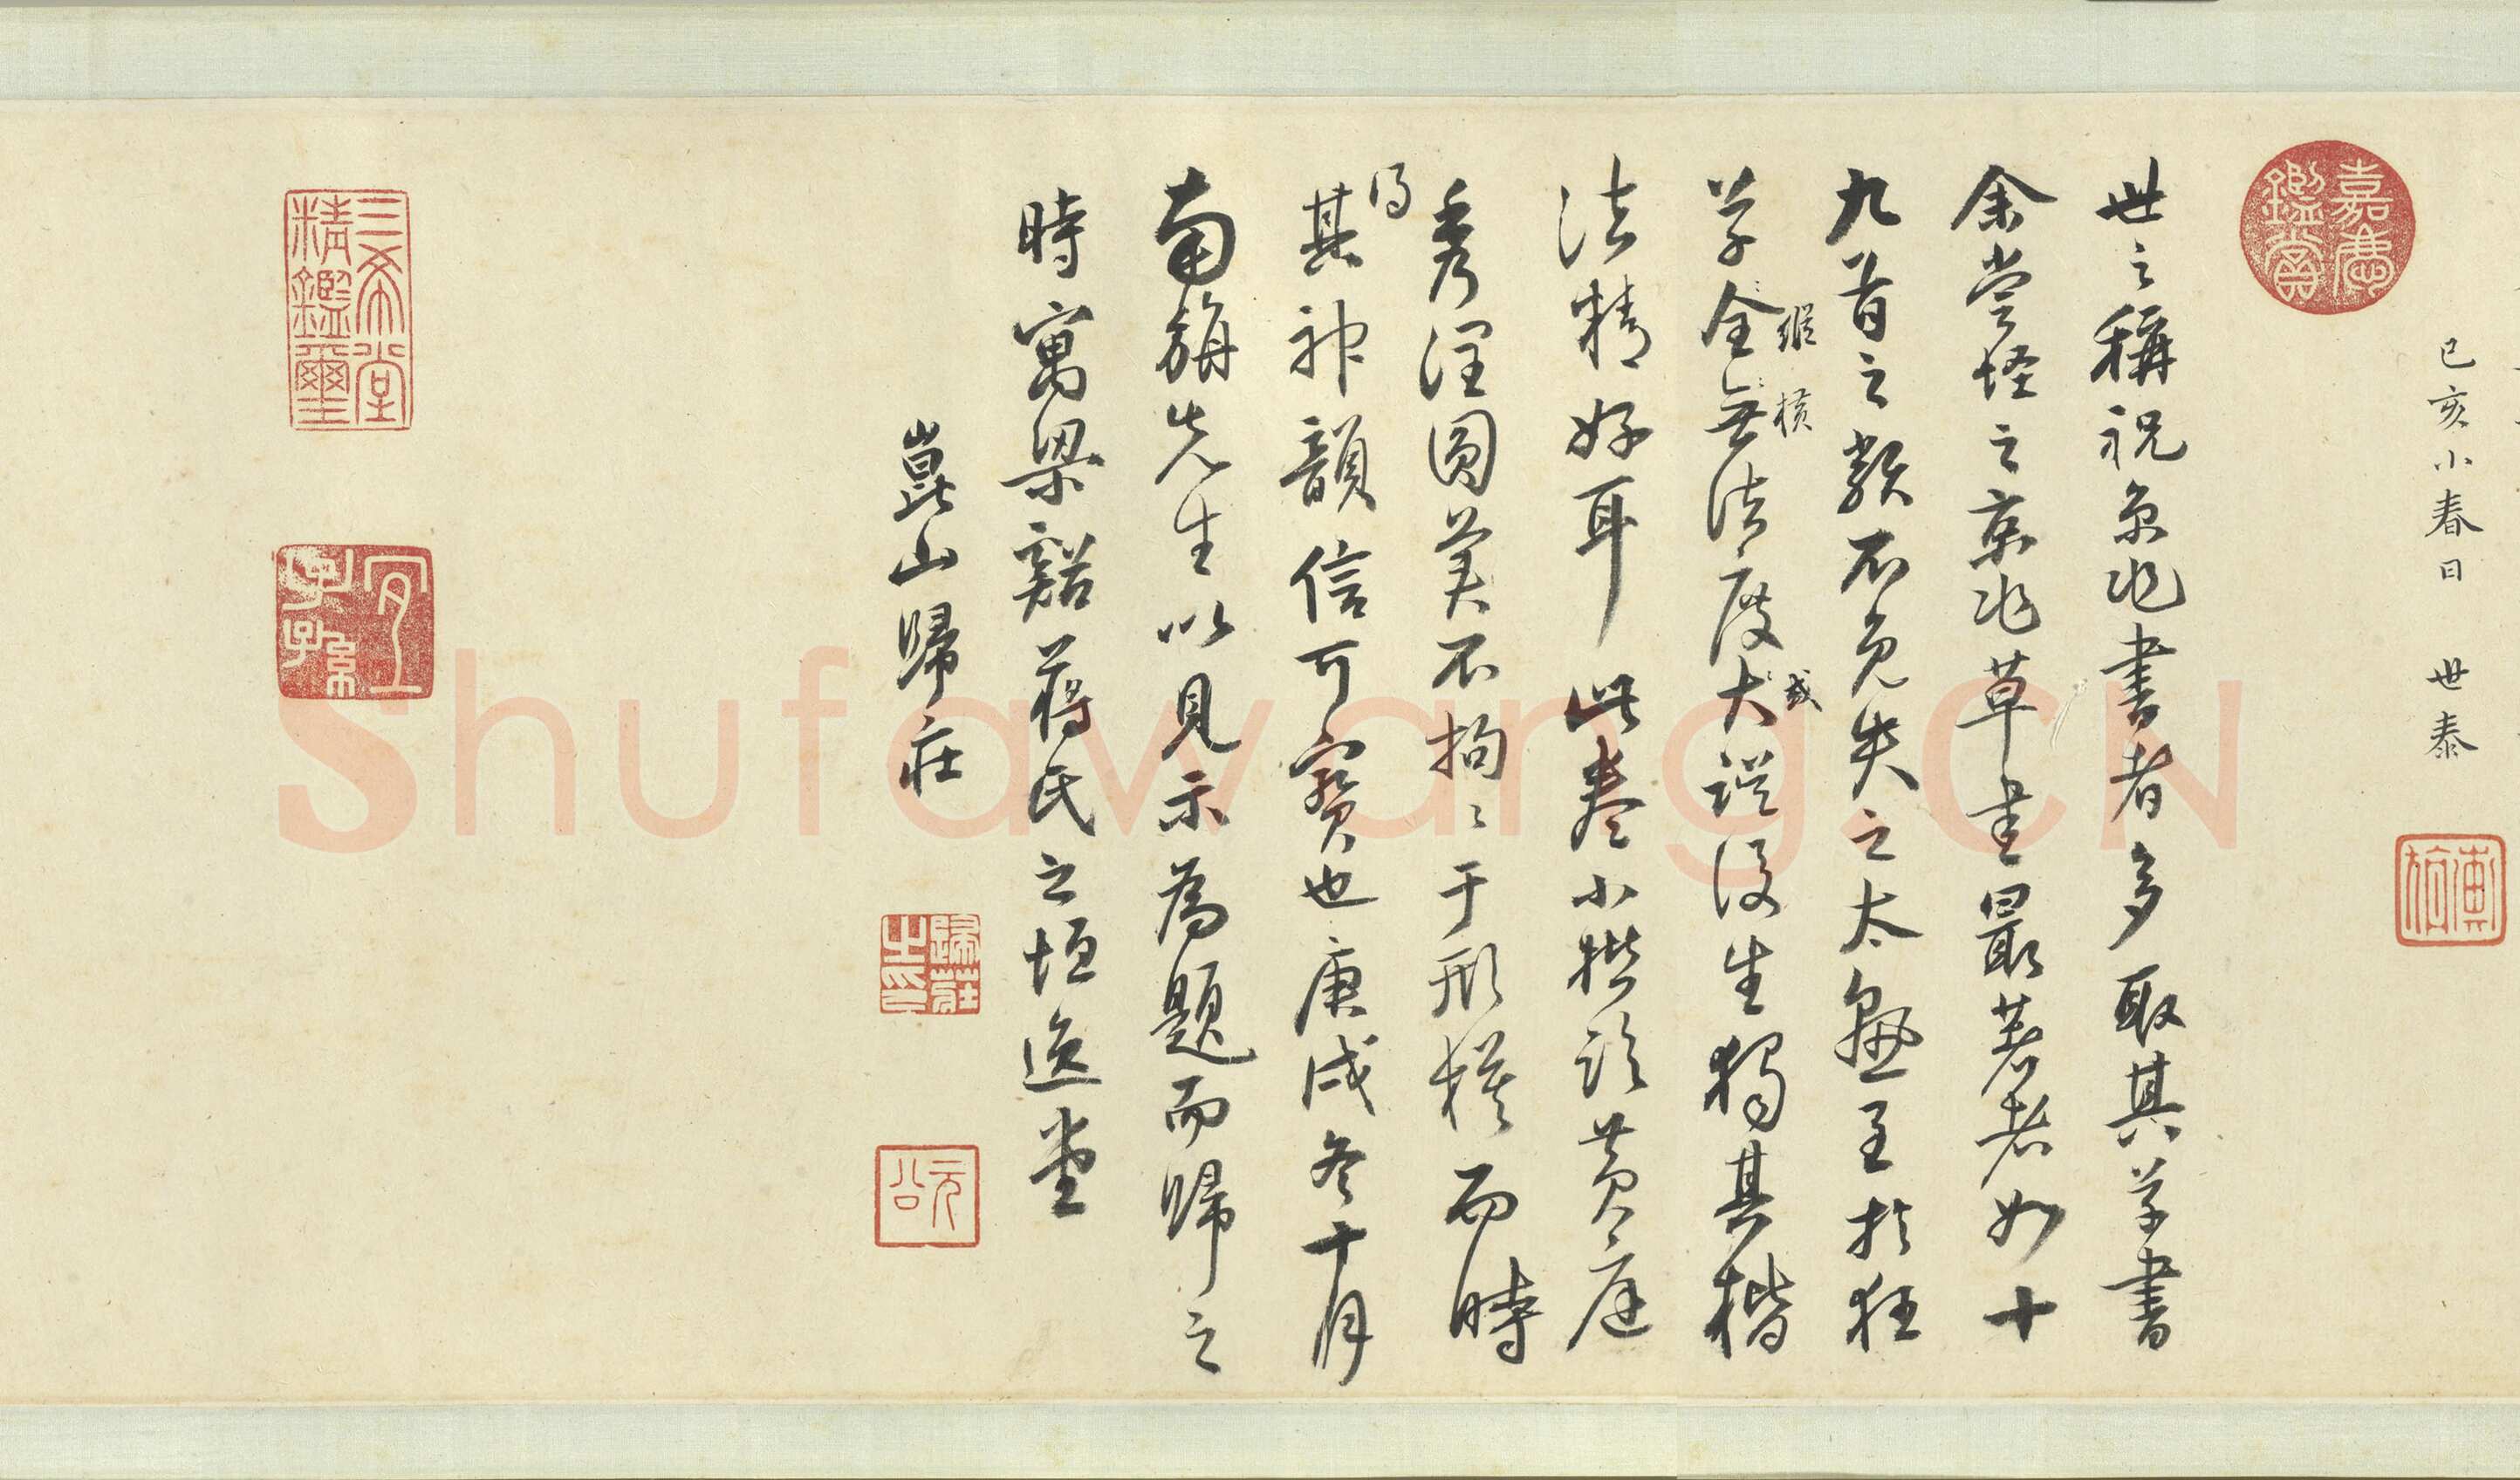 己亥小春日 世泰
嘉慶鑑賞
世之稱祝京兆書者多取其草書
余嘗怪之京兆草書最著者如十
九首之類不免失之太至於狂
草全無法度大誤後生獨其楷
縱橫
或
法精好耳此卷小楷臨黃庭
秀潤圓美不拘〻于形模而時
得
其神韻信可寶也庚戌冬十月
南旃先生以見示為題而歸之
時寓梁谿蔣氏之垣逸堂
崑山歸莊
歸莊之印
元公
三希堂精鑑璽
宜子孫
Shufawang.CN